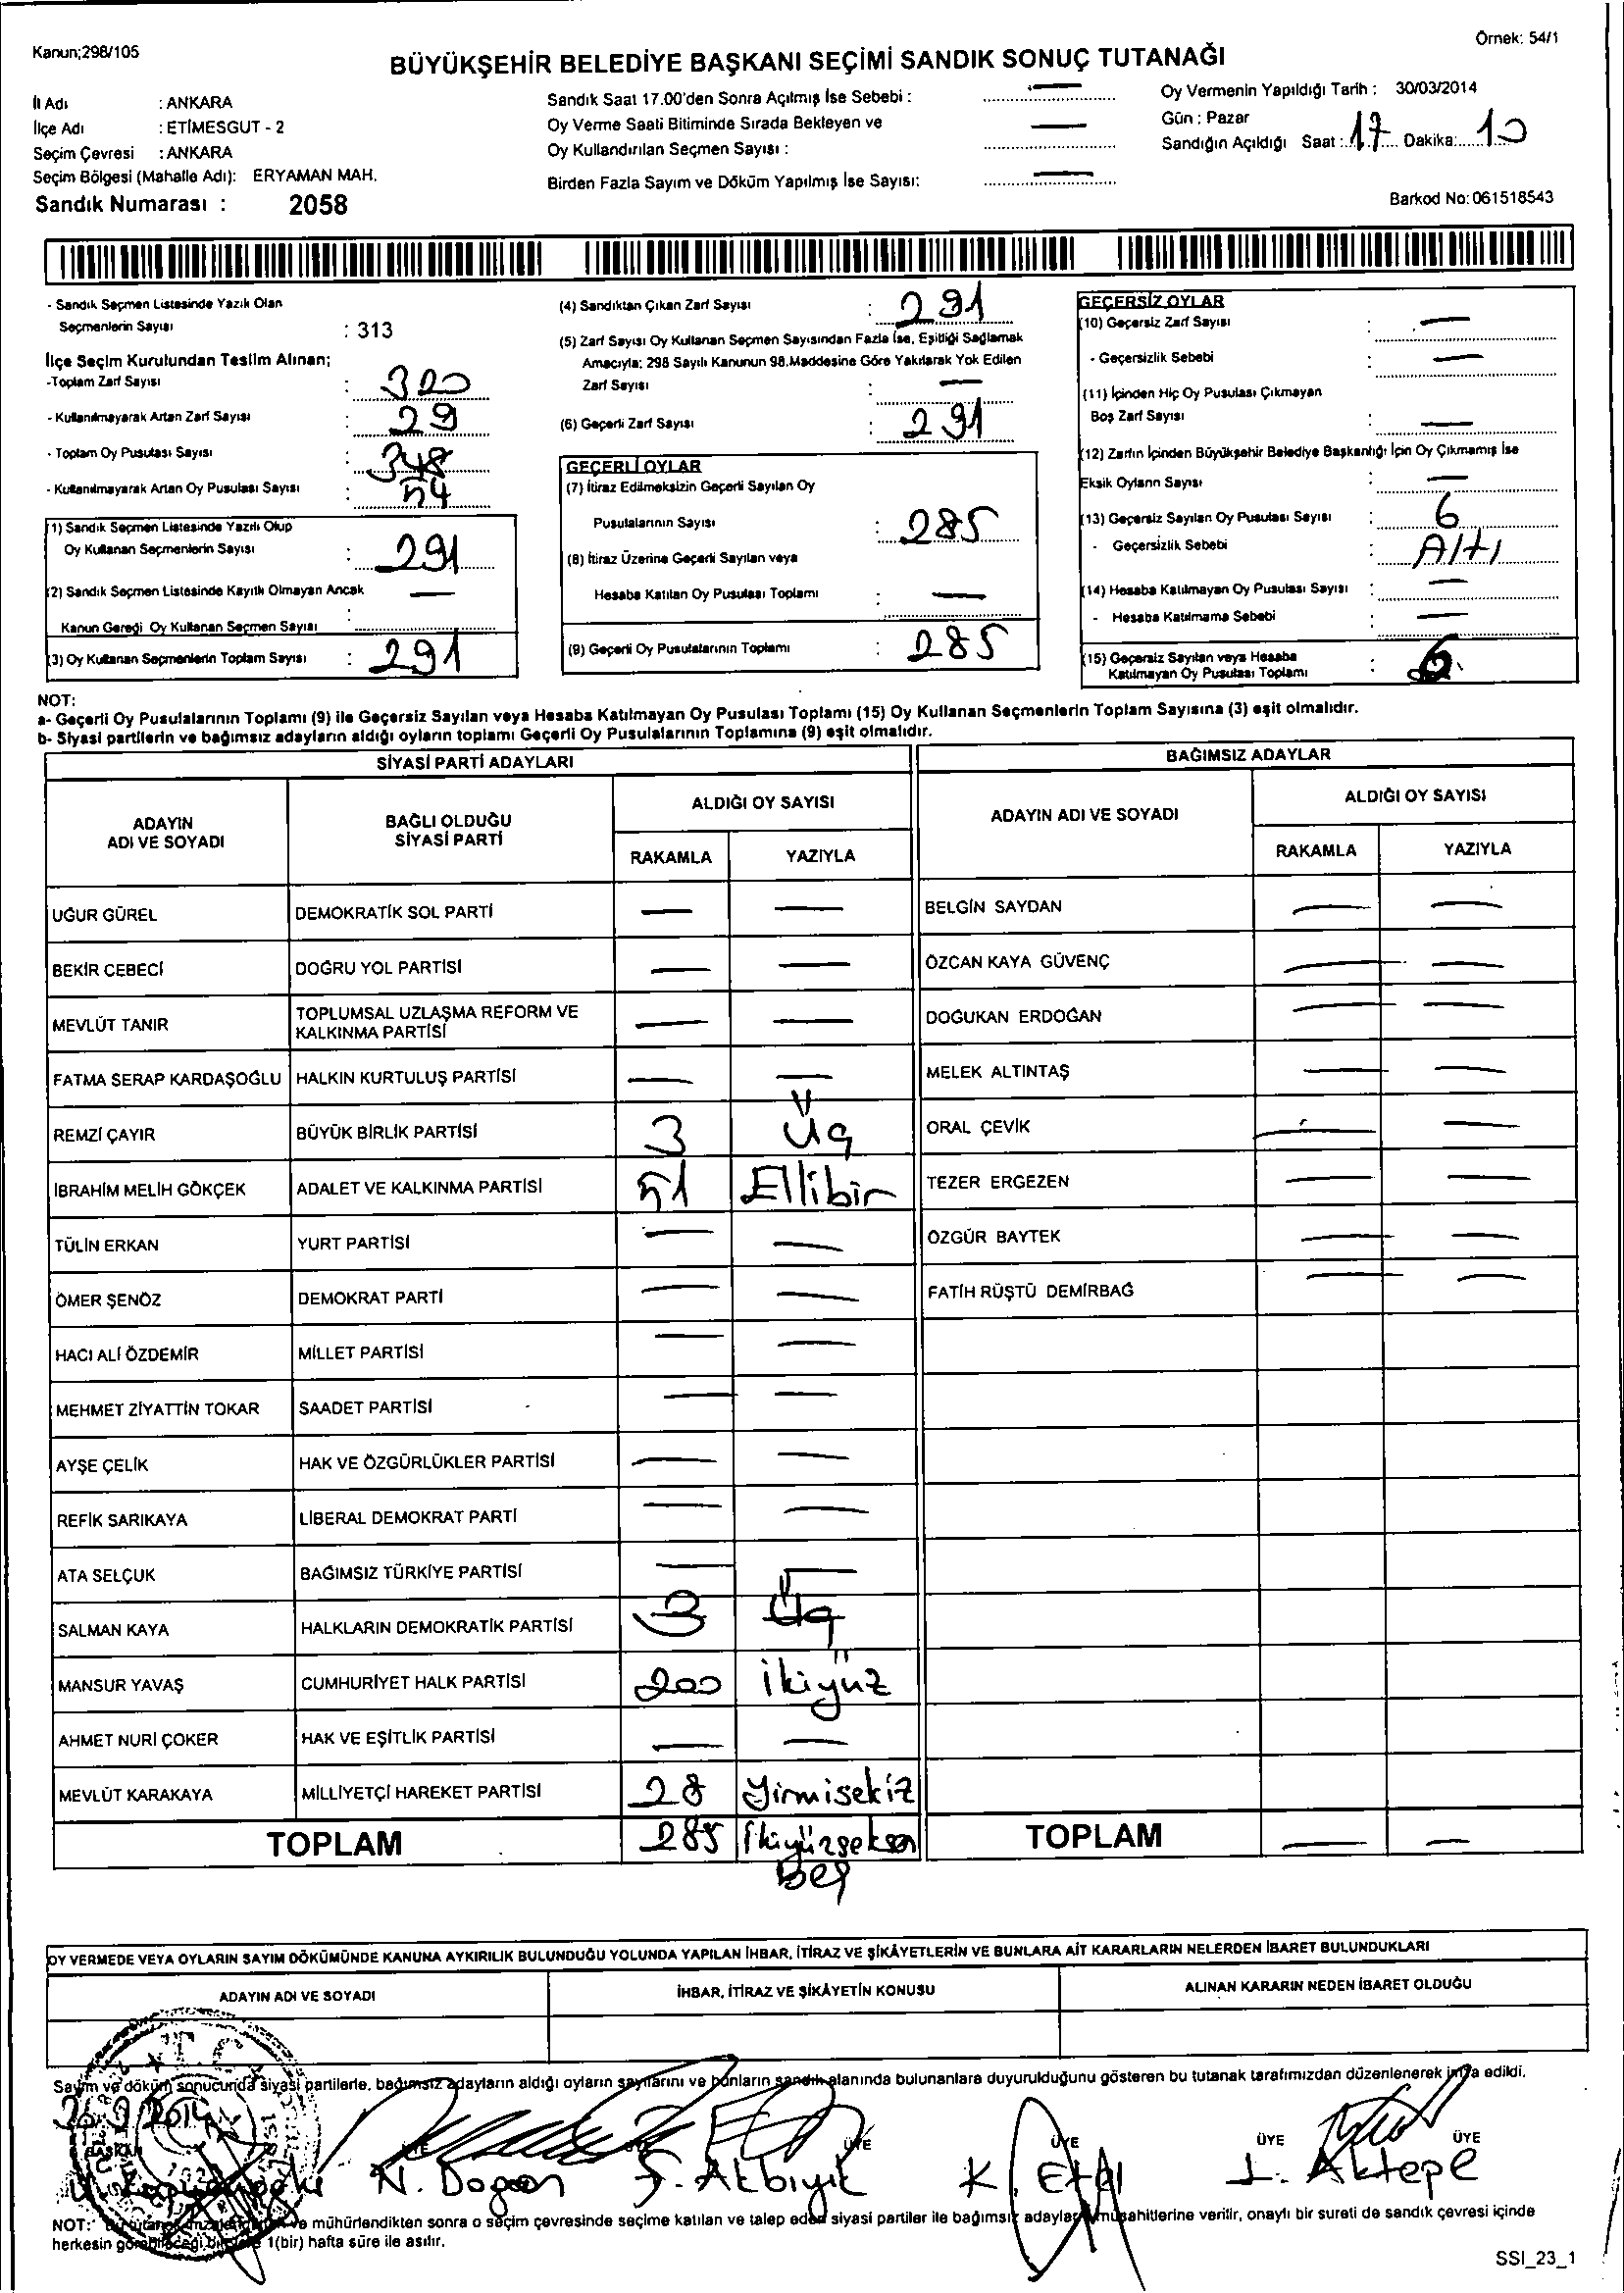 Kanun;298/105
Örnek: 54/1
BÜYÜKŞEHİR BELEDİYE BAŞKANI SEÇİMİ SANDIK SONUÇ TUTANAĞI
İl Adı : ANKARA
İlçe Adı : ETİMESGUT - 2
Seçim Çevresi : ANKARA
Seçim Bölgesi (Mahalle Adı): ERYAMAN MAH.
Sandık Numarası : 2058
Sandık Saat 17.00'den Sonra Açılmış İse Sebebi : —
Oy Verme Saati Bitiminde Sırada Bekleyen ve —
Oy Kullandırılan Seçmen Sayısı :
Birden Fazla Sayım ve Döküm Yapılmış İse Sayısı: —
Oy Vermenin Yapıldığı Tarih : 30/03/2014
Gün : Pazar
Sandığın Açıldığı Saat : 17 Dakika: 10
Barkod No: 061518543
- Sandık Seçmen Listesinde Yazılı Olan
Seçmenlerin Sayısı : 313
İlçe Seçim Kurulundan Teslim Alınan;
-Toplam Zarf Sayısı : 320
- Kullanılmayarak Artan Zarf Sayısı : 29
- Toplam Oy Pusulası Sayısı : 348
- Kullanılmayarak Artan Oy Pusulası Sayısı : 54
(1) Sandık Seçmen Listesinde Yazılı Olup
Oy Kullanan Seçmenlerin Sayısı : 291
(2) Sandık Seçmen Listesinde Kayıtlı Olmayan Ancak —
Kanun Gereği Oy Kullanan Seçmen Sayısı :
(3) Oy Kullanan Seçmenlerin Toplam Sayısı : 291
(4) Sandıktan Çıkan Zarf Sayısı : 291
(5) Zarf Sayısı Oy Kullanan Seçmen Sayısından Fazla İse, Eşitliği Sağlamak
Amacıyla; 298 Sayılı Kanunun 98.Maddesine Göre Yakılarak Yok Edilen
Zarf Sayısı : —
(6) Geçerli Zarf Sayısı : 291
GEÇERLİ OYLAR
(7) İtiraz Edilmeksizin Geçerli Sayılan Oy
Pusulalarının Sayısı : 285
(8) İtiraz Üzerine Geçerli Sayılan veya
Hesaba Katılan Oy Pusulası Toplamı : —
(9) Geçerli Oy Pusulalarının Toplamı : 285
GEÇERSİZ OYLAR
(10) Geçersiz Zarf Sayısı : —
- Geçersizlik Sebebi : —
(11) İçinden Hiç Oy Pusulası Çıkmayan
Boş Zarf Sayısı : —
(12) Zarfın İçinden Büyükşehir Belediye Başkanlığı İçin Oy Çıkmamış İse
Eksik Oyların Sayısı : —
(13) Geçersiz Sayılan Oy Pusulası Sayısı : 6
- Geçersizlik Sebebi : Altı
(14) Hesaba Katılmayan Oy Pusulası Sayısı : —
- Hesaba Katılmama Sebebi : —
(15) Geçersiz Sayılan veya Hesaba
Katılmayan Oy Pusulası Toplamı : 6
NOT:
a- Geçerli Oy Pusulalarının Toplamı (9) ile Geçersiz Sayılan veya Hesaba Katılmayan Oy Pusulası Toplamı (15) Oy Kullanan Seçmenlerin Toplam Sayısına (3) eşit olmalıdır.
b- Siyasi partilerin ve bağımsız adayların aldığı oyların toplamı Geçerli Oy Pusulalarının Toplamına (9) eşit olmalıdır.
SİYASİ PARTİ ADAYLARI
ADAYIN ADI VE SOYADI
BAĞLI OLDUĞU SİYASİ PARTİ
ALDIĞI OY SAYISI
RAKAMLA YAZIYLA
UĞUR GÜREL DEMOKRATİK SOL PARTİ — —
BEKİR CEBECİ DOĞRU YOL PARTİSİ — —
MEVLÜT TANIR TOPLUMSAL UZLAŞMA REFORM VE KALKINMA PARTİSİ — —
FATMA SERAP KARDAŞOĞLU HALKIN KURTULUŞ PARTİSİ — —
REMZİ ÇAYIR BÜYÜK BİRLİK PARTİSİ 3 Üç
İBRAHİM MELİH GÖKÇEK ADALET VE KALKINMA PARTİSİ 51 Ellibir
TÜLİN ERKAN YURT PARTİSİ — —
ÖMER ŞENÖZ DEMOKRAT PARTİ — —
HACI ALİ ÖZDEMİR MİLLET PARTİSİ — —
MEHMET ZİYATTİN TOKAR SAADET PARTİSİ — —
AYŞE ÇELİK HAK VE ÖZGÜRLÜKLER PARTİSİ — —
REFİK SARIKAYA LİBERAL DEMOKRAT PARTİ — —
ATA SELÇUK BAĞIMSIZ TÜRKİYE PARTİSİ — —
SALMAN KAYA HALKLARIN DEMOKRATİK PARTİSİ 3 Üç
MANSUR YAVAŞ CUMHURİYET HALK PARTİSİ 200 İkiyüz
AHMET NURİ ÇOKER HAK VE EŞİTLİK PARTİSİ — —
MEVLÜT KARAKAYA MİLLİYETÇİ HAREKET PARTİSİ 28 Yirmisekiz
TOPLAM 285 İkiyüzseksen
Beş
BAĞIMSIZ ADAYLAR
ADAYIN ADI VE SOYADI
ALDIĞI OY SAYISI
RAKAMLA YAZIYLA
BELGİN SAYDAN — —
ÖZCAN KAYA GÜVENÇ — —
DOĞUKAN ERDOĞAN — —
MELEK ALTINTAŞ — —
ORAL ÇEVİK — —
TEZER ERGEZEN — —
ÖZGÜR BAYTEK — —
FATİH RÜŞTÜ DEMİRBAĞ — —
TOPLAM — —
OY VERMEDE VEYA OYLARIN SAYIM DÖKÜMÜNDE KANUNA AYKIRILIK BULUNDUĞU YOLUNDA YAPILAN İHBAR, İTİRAZ VE ŞİKÂYETLERİN VE BUNLARA AİT KARARLARIN NELERDEN İBARET BULUNDUKLARI
ADAYIN ADI VE SOYADI
İHBAR, İTİRAZ VE ŞİKÂYETİN KONUSU
ALINAN KARARIN NEDEN İBARET OLDUĞU
T.C.
Sayım ve döküm sonucunda siyasi partilerle, bağımsız adayların aldığı oyların sayılarını ve bunların sandık alanında bulunanlara duyurulduğunu gösteren bu tutanak tarafımızdan düzenlenerek imza edildi.
BAŞKAN ÜYE ÜYE ÜYE ÜYE ÜYE
N. Doğan
Akbıyık
K.
Aktepe
NOT: ve mühürlendikten sonra o seçim çevresinde seçime katılan ve talep eden siyasi partiler ile bağımsız adaylar müşahitlerine verilir, onaylı bir sureti de sandık çevresi içinde
herkesin 1(bir) hafta süre ile asılır.
SSI_23_1